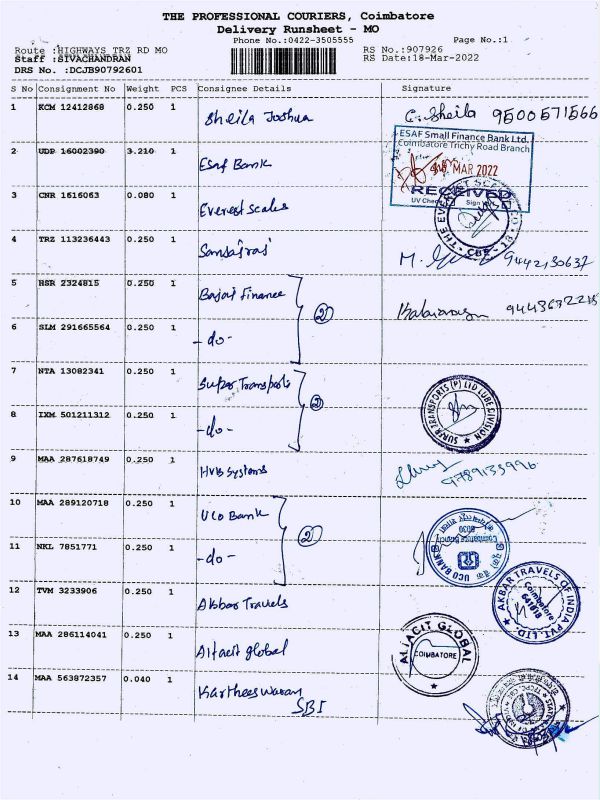 THE PROFESSIONAL COURIERS, Coimbatore
Delivery Runsheet - MO
Phone No.:0422-3505555 Page No.:1
Route :HIGHWAYS TRZ RD MO RS No.:907926
Staff :SIVACHANDRAN RS Date:18-Mar-2022
DRS No. :DCJB90792601
S No Consignment No Weight PCS Consignee Details Signature
1 KCM 12412868 0.250 1 Sheila Joshua C. Sheila 9500571566
ESAF Small Finance Bank Ltd.
Coimbatore Trichy Road Branch
2 UDP 16002390 3.210 1 Esaf Bank MAR 2022
RECEIVED
UV Check Sign
3 CNR 1616063 0.080 1 Everest Scales
CBE - 18
4 TRZ 113236443 0.250 1 M. 9442130637
5 HSR 2324815 0.250 1 Bajaj Finance 2
6 SLM 291665564 0.250 1 -do-
7 NTA 13082341 0.250 1 Super Transports 2 SUPER TRANSPORTS (P) LTD LUBE DIVISION
8 IXM 501211312 0.250 1 -do-
9 MAA 287618749 0.250 1 HVB Systems
10 MAA 289120718 0.250 1 UCO Bank 2 UCO BANK Coimbatore Branch
11 NKL 7851771 0.250 1 -do-
12 TVM 3233906 0.250 1 Akbar Travels AKBAR TRAVELS OF INDIA PVT. LTD. Coimbatore 641018
13 MAA 286114041 0.250 1 Aljacit global ALJACIT GLOBAL COIMBATORE
14 MAA 563872357 0.040 1 Kartheeswaran
SBI